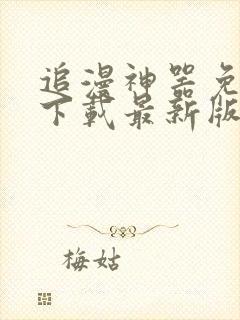 追漫神器免
下载最新版
梅姑